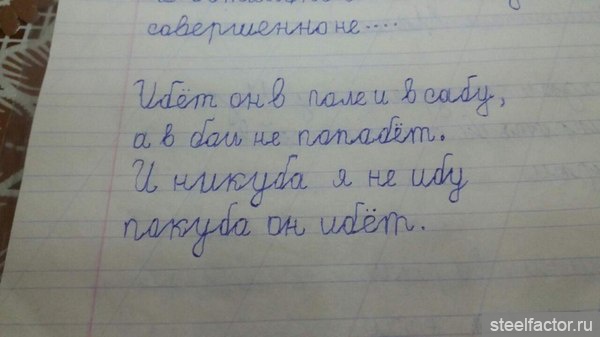 совершенно не....
Идёт он в поле и в саду,
а в дом не попадёт.
И никуда я не иду
покуда он идёт.
steelfactor.ru